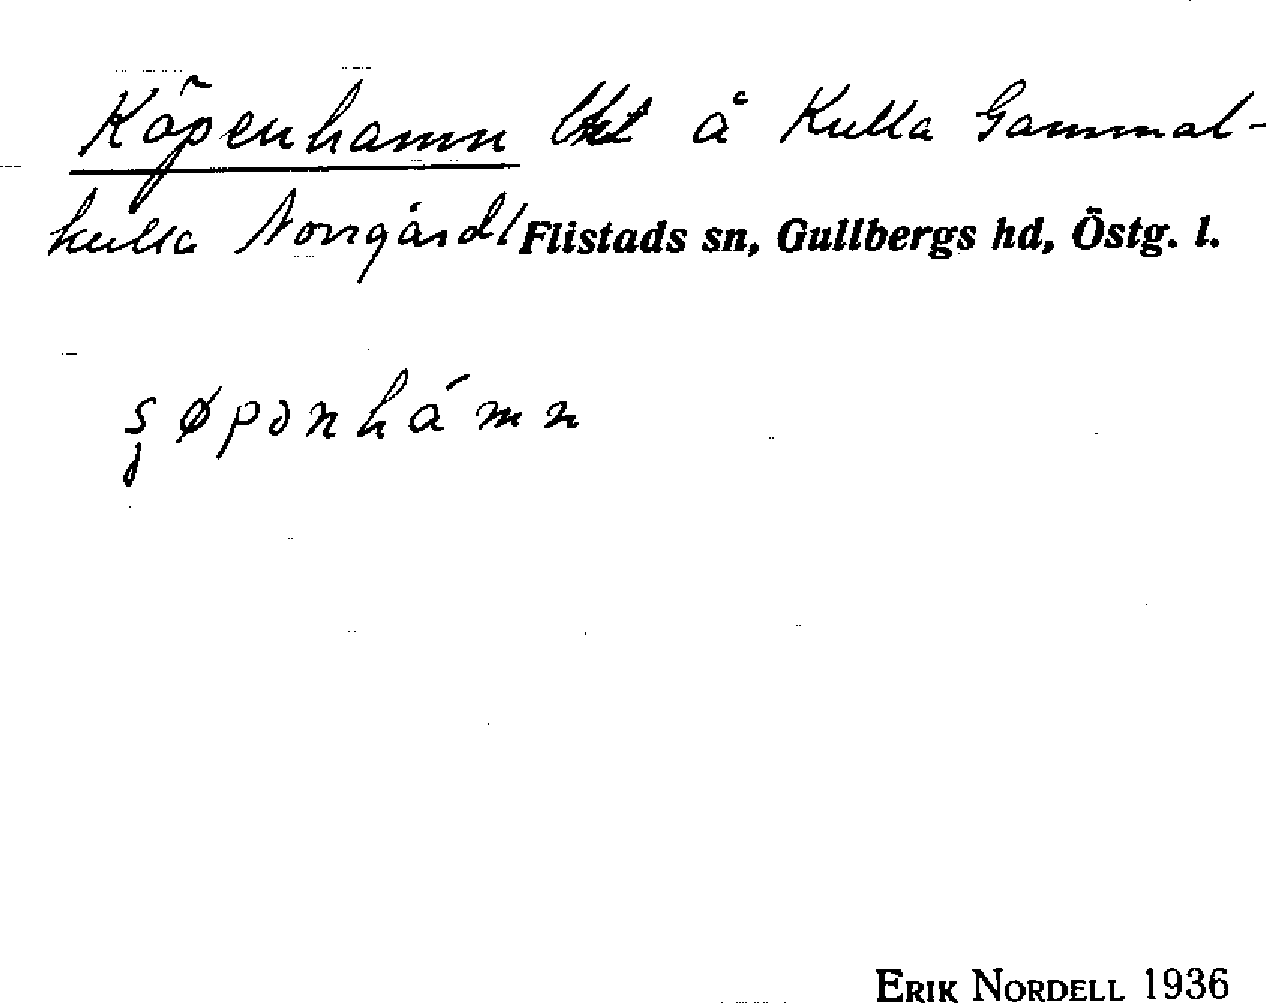 Köpenhamn å Kulla Gammal-
kulla Norrgård/ Flistads sn, Gullbergs hd, Östg. l.
ʂøpənhámn
ERIK NORDELL 1936